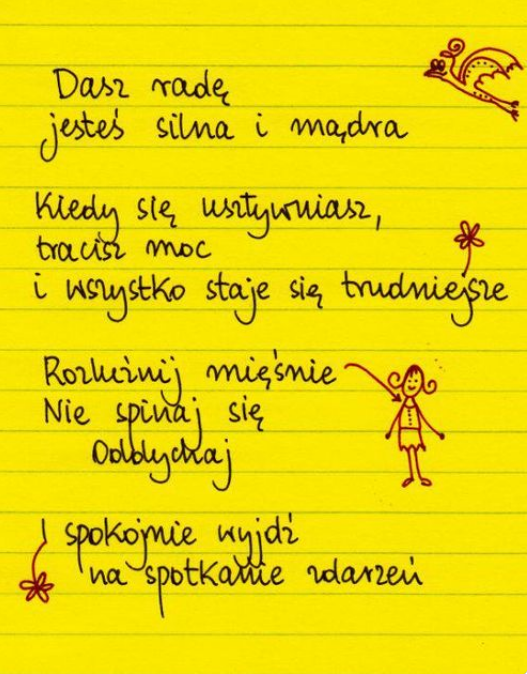 Dasz radę
jesteś silna i mądra
Kiedy się usztywniasz,
tracisz moc
i wszystko staje się trudniejsze
Rozluźnij mięśnie
Nie spinaj się
Oddychaj
I spokojnie wyjdź
na spotkanie zdarzeń